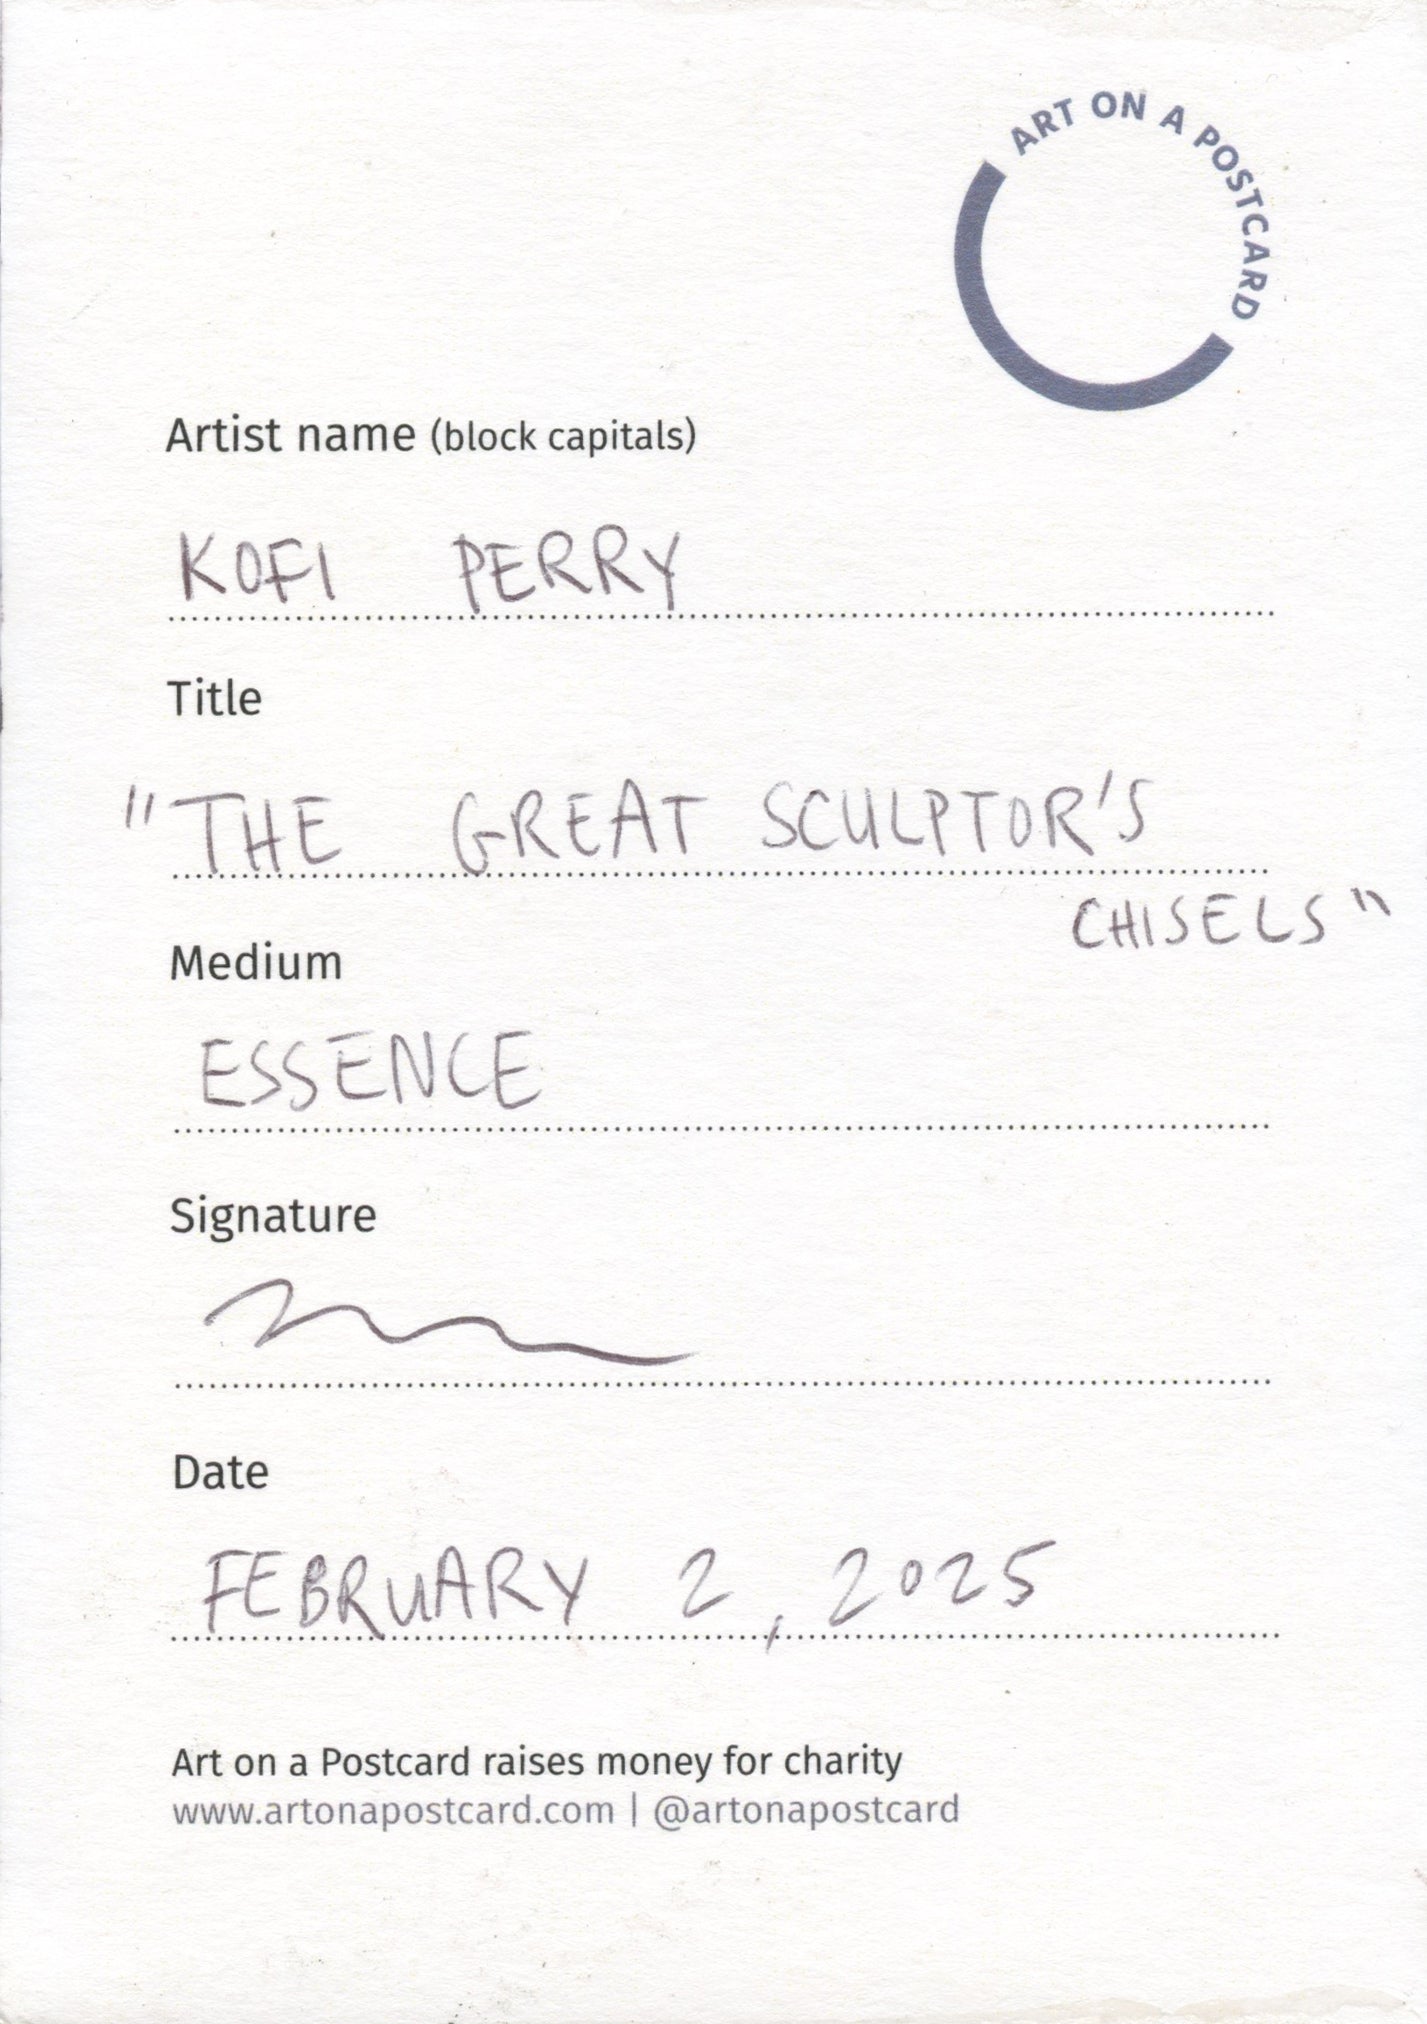 ART ON A POSTCARD
Artist name (block capitals)
KOFI PERRY
Title
"THE GREAT SCULPTOR'S
CHISELS"
Medium
ESSENCE
Signature
Date
FEBRUARY 2, 2025
Art on a Postcard raises money for charity
www.artonapostcard.com | @artonapostcard